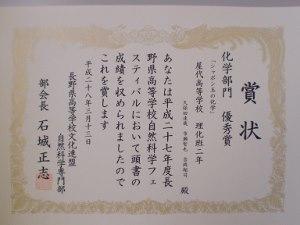 賞状
化学部門 優秀賞
「シャボン玉の化学」
屋代高等学校 理化班二年
殿
あなたは平成二十七年度長
野県高等学校自然科学フェ
スティバルにおいて頭書の
成績を収められましたので
これを賞します
平成二十八年三月十三日
長野県高等学校文化連盟
自然科学専門部
部会長 石城正志